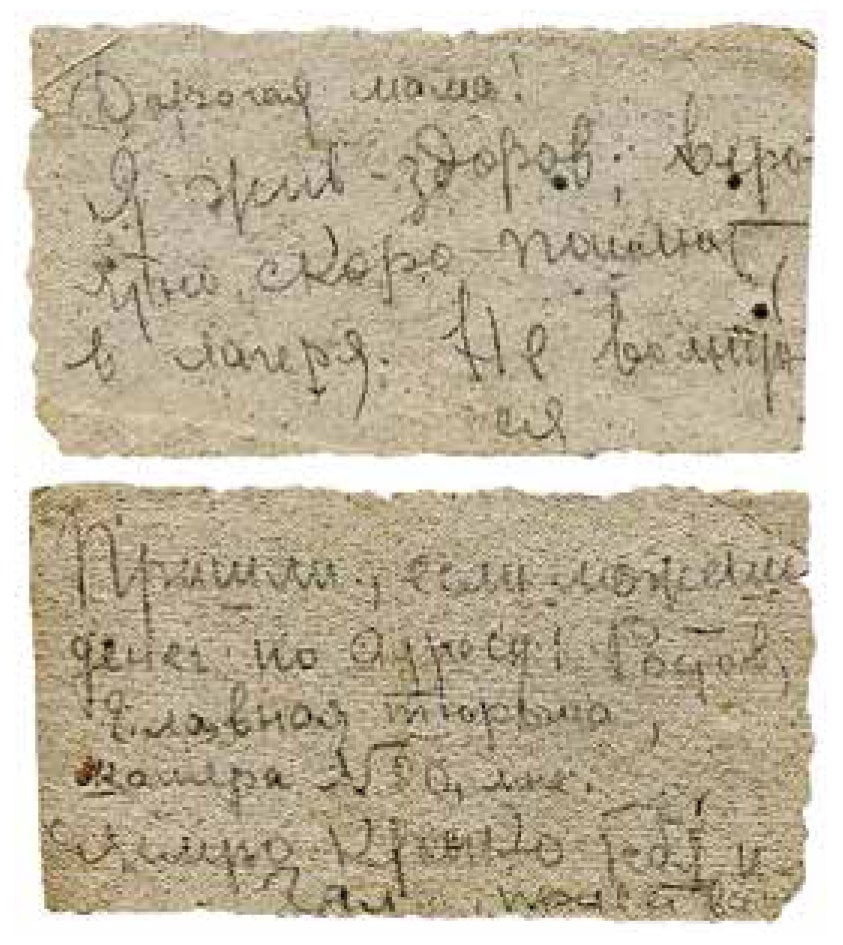 Дорогая мама!
Я жив-здоров, веро
ятно, скоро пошлют
в лагеря. Не волнуй
ся
Пришли, если можешь
денег по адресу: Ростов,
Главная тюрьма,
камера № мне.
Крепко и